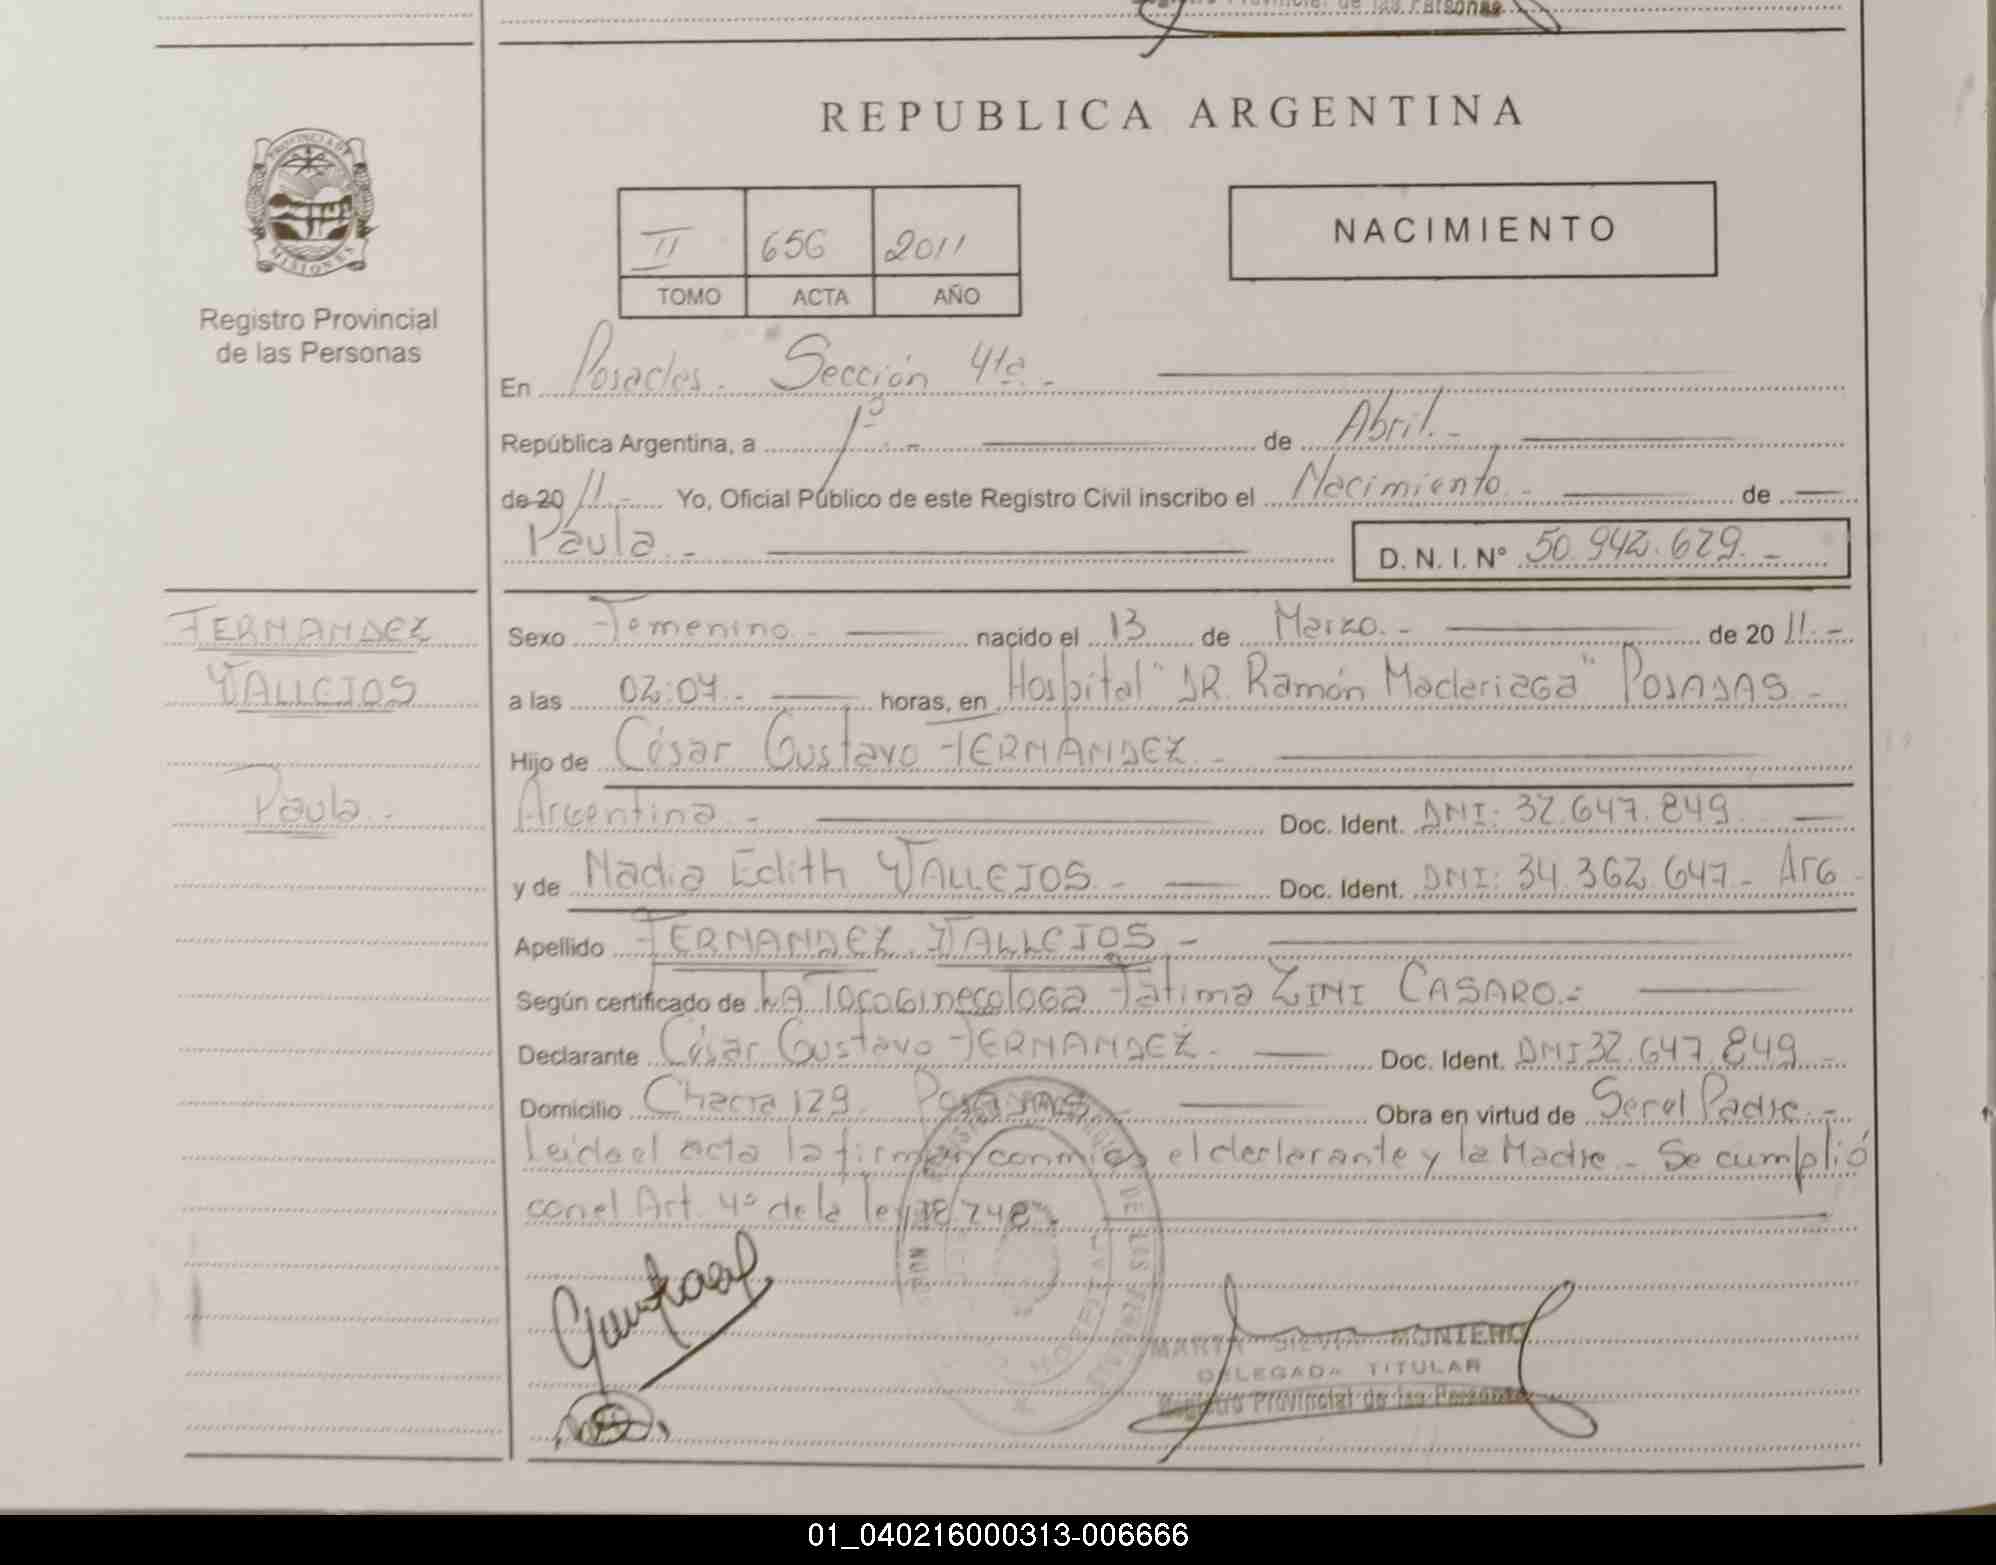 de las Personas
REPUBLICA ARGENTINA
PROVINCIA DE
MISIONES
Registro Provincial
de las Personas
II 656 2011
TOMO ACTA AÑO
NACIMIENTO
En Posadas. Sección 4ta.-
República Argentina, a 1º.- de Abril.-
de 20 11.- Yo, Oficial Público de este Registro Civil inscribo el Nacimiento.- de
Paula.- D. N. I. Nº 50.942.629.-
FERNANDEZ
VALLEJOS
Paula.-
Sexo Femenino.- nacido el 13 de Marzo.- de 20 11.-
a las 02:04.- horas, en Hospital "DR. Ramón Madariaga" POSADAS.-
Hijo de César Gustavo FERNANDEZ.-
Argentina.- Doc. Ident. DNI: 32.647.849.
y de Nadia Edith VALLEJOS.- Doc. Ident. DNI: 34.362.647.- ArG.-
Apellido FERNANDEZ VALLEJOS.-
Según certificado de LA TOCOGinecologa Fatima ZINI CASARO.-
Declarante César Gustavo FERNANDEZ.- Doc. Ident. DNI 32.647.849.-
Domicilio Chacra 129. POSADAS.- Obra en virtud de Ser el Padre.-
Leida el acta la firman conmigo el declarante y la Madre.- Se cumplió
con el Art. 4º de la ley 18.248.
MARTA SILVIA MONTERO
DELEGADA TITULAR
Registro Provincial de las Personas
01_040216000313-006666